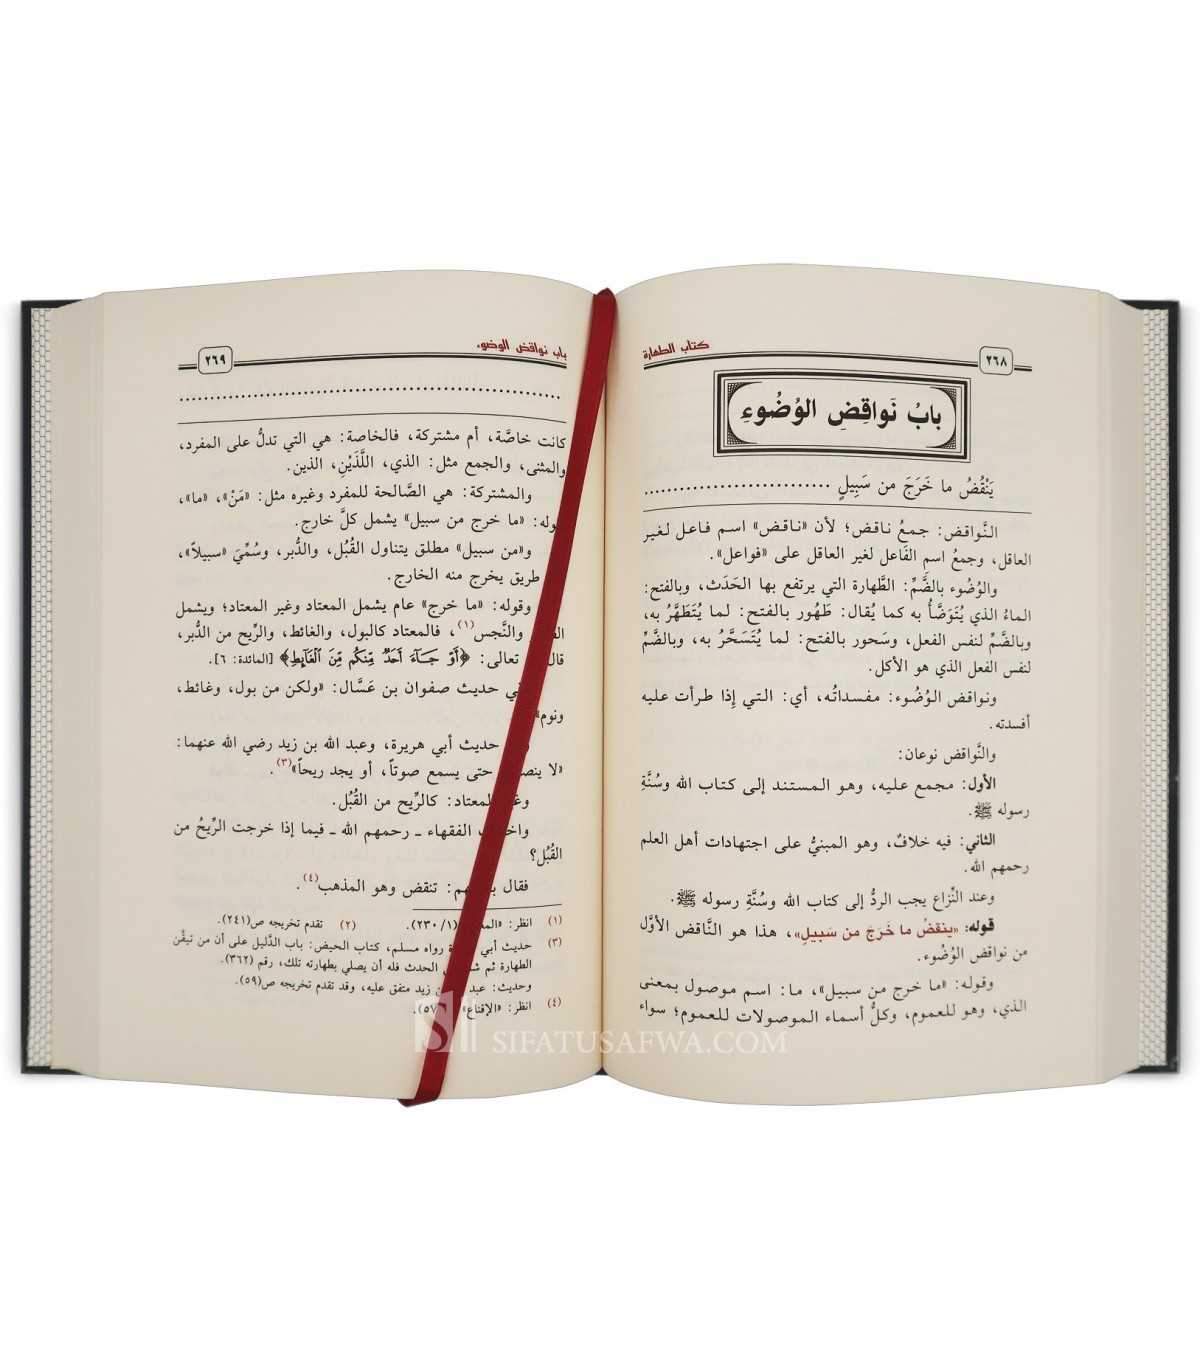 كتاب الطهارة
٢٦٨
بابُ نَواقِضِ الوُضُوءِ
يَنْقُضُ ما خَرَجَ من سَبِيلٍ ..............................
النَّواقض: جمعُ ناقض؛ لأن «ناقض» اسم فاعل لغير
العاقل، وجمعُ اسم الفَاعل لغير العاقل على «فواعل».
والوُضُوء بالضَّمِّ: الطَّهارة التي يرتفع بها الحَدَث، وبالفتح:
الماءُ الذي يُتَوَضَّأُ به كما يُقال: طَهُور بالفتح: لما يُتَطَهَّرُ به،
وبالضَّمِّ لنفس الفعل، وسَحور بالفتح: لما يُتَسَحَّرُ به، وبالضَّمِّ
لنفس الفعل الذي هو الأكل.
ونواقض الوُضُوء: مفسداتُه، أي: التي إِذا طرأت عليه
أفسدته.
والنَّواقض نوعان:
الأول: مجمع عليه، وهو المستند إلى كتاب الله وسُنَّةِ
رسوله ﷺ.
الثاني: فيه خلافٌ، وهو المبنيُّ على اجتهادات أهل العلم
رحمهم الله.
وعند النِّزاع يجب الردُّ إلى كتاب الله وسُنَّةِ رسوله ﷺ.
قوله: «ينقضُ ما خَرَجَ من سَبِيلٍ»، هذا هو النَّاقض الأوَّل
من نواقض الوُضُوء.
وقوله: «ما خرج من سبيل»، ما: اسم موصول بمعنى
الذي، وهو للعموم، وكلُّ أسماء الموصولات للعموم؛ سواء
باب نواقض الوضوء
٢٦٩
..............................
كانت خاصَّة، أم مشتركة، فالخاصة: هي التي تدلُّ على المفرد،
والمثنى، والجمع مثل: الذي، اللَّذَيْنِ، الذين.
والمشتركة: هي الصَّالحة للمفرد وغيره مثل: «مَنْ»، «ما»،
«ما خرج من سبيل» يشمل كلَّ خارج.
و«من سبيل» مطلق يتناول القُبُل، والدُّبر، وسُمِّيَ «سبيلاً»،
طريق يخرج منه الخارج.
وقوله: «ما خرج» عام يشمل المعتاد وغير المعتاد؛ ويشمل
والنَّجس(١)، فالمعتاد كالبول، والغائط، والرِّيح من الدُّبر،
قال تعالى: ﴿أَوْ جَاءَ أَحَدٌ مِّنكُم مِّنَ الْغَائِطِ﴾ [المائدة: ٦].
حديث صفوان بن عَسَّال: «ولكن من بول، وغائط،
ونوم»
حديث أبي هريرة، وعبد الله بن زيد رضي الله عنهما:
«لا حتى يسمع صوتاً، أو يجد ريحاً»(٣).
المعتاد: كالرِّيح من القُبُل.
الفقهاء ـ رحمهم الله ـ فيما إذا خرجت الرِّيحُ من
القُبُل؟
فقال تنقض وهو المذهب(٤).
(١) انظر: (١/ ٢٣٠). (٢) تقدم تخريجه ص(٢٤١).
(٣) حديث أبي رواه مسلم، كتاب الحيض: باب الدَّليل على أن من تيقَّن
الطهارة ثم الحدث فله أن يصلي بطهارته تلك، رقم (٣٦٢).
وحديث: زيد متفق عليه، وقد تقدم تخريجه ص(٥٩).
(٤) انظر: «الإقناع»
SIFATUSAFWA.COM